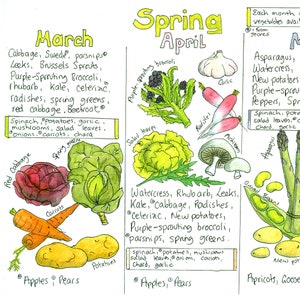 Spring
March
Cabbage, Swede°, parsnips°
Leeks, Brussels Sprouts,
Purple-Sprouting Broccoli,
rhubarb, Kale, celeriac,
radishes, spring greens,
red cabbage, Beetroot°.
Spinach, Potatoes, garlic,
mushrooms, salad leaves,
onions, carrots, chard
Red Cabbage
Spring greens
Carrots
Potatoes
°Apples, °Pears
April
Purple-sprouting broccoli
Garlic
Radishes
Salad leaves
Mushrooms
Watercress, Rhubarb, Leeks,
Kale, °Cabbage, Radishes,
°celeriac, New potatoes,
Purple-sprouting broccoli,
parsnips, spring greens.
Spinach, °potatoes, mushrooms
salad leaves, onion, carrots,
chard, garlic
°Apples, °Pears
Each month,
vegetables avail
° = from
stores
M
Asparagus,
Watercress,
New potatoes
Purple-sprout
Peppers, Spr
Spinach,
salad leaves,
chard, garlic
Apricots, Goose